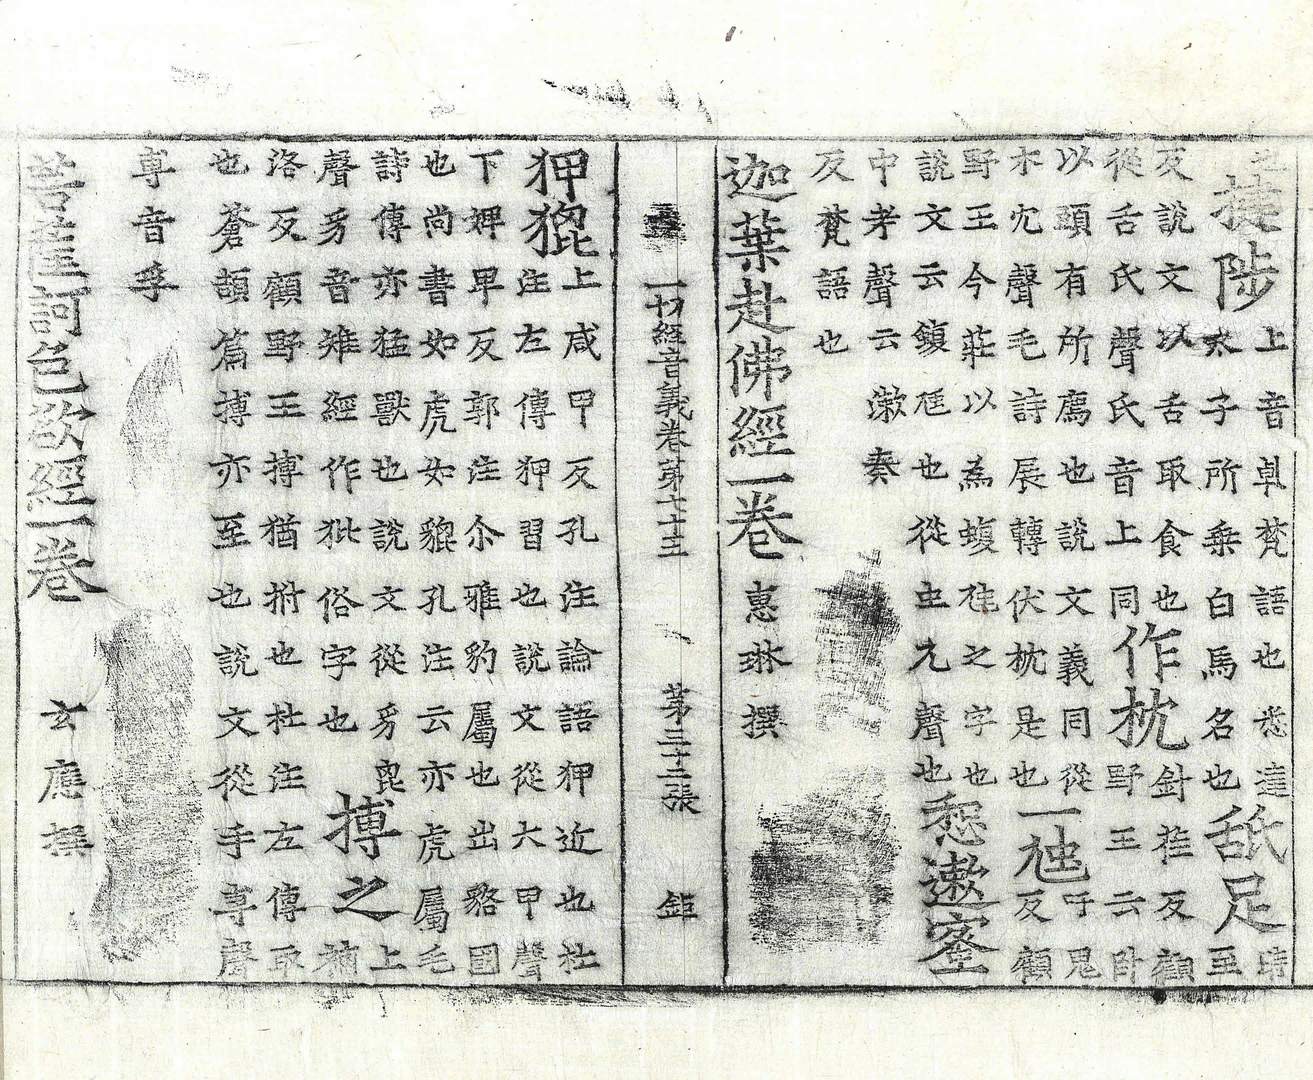 揵陟上音卓梵語也悉達
太子所乘白馬名也舐足時
至
反說文以舌取食也
從舌氏聲氏音上同作枕針荏反顧
野王云卧
以頭有所廌也說文義同從
木冘聲毛詩展轉伏枕是也一虺吁鬼
反顧
野王今莊以為蝮虺之字也
說文云鎮虺也從虫兀聲也
中孝聲云漱奏
反梵語也
迦葉赴佛經一卷 惠琳撰
一切經音義卷第七十五 第三十二張 鉅
狎貔上咸甲反孔注論語狎近也杜
注左傳狎習也說文從大甲聲
下婢卑反郭注尒雅豹屬也出貉國
也尚書如虎如貔孔注云亦虎屬毛
詩傳亦猛獸也說文從豸毘
聲豸音雉經作豼俗字也搏之上
補
洛反顧野王搏猶拊也杜注左傳取
也蒼頡篇搏亦至也說文從手尃聲
尃音孚
菩薩訶色欲經一卷 玄應撰